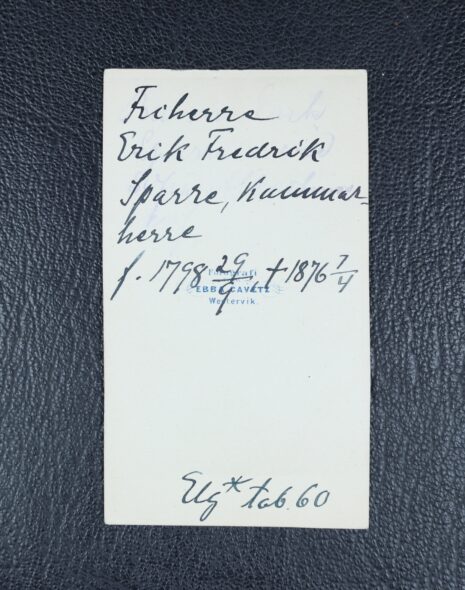 Friherre
Erik Fredrik
Sparre, Kammar-
herre
f. 1798 29/9, † 1876 7/4
Fotografi
EBBA CAVETZ
Westervik.
Elg* tab. 60